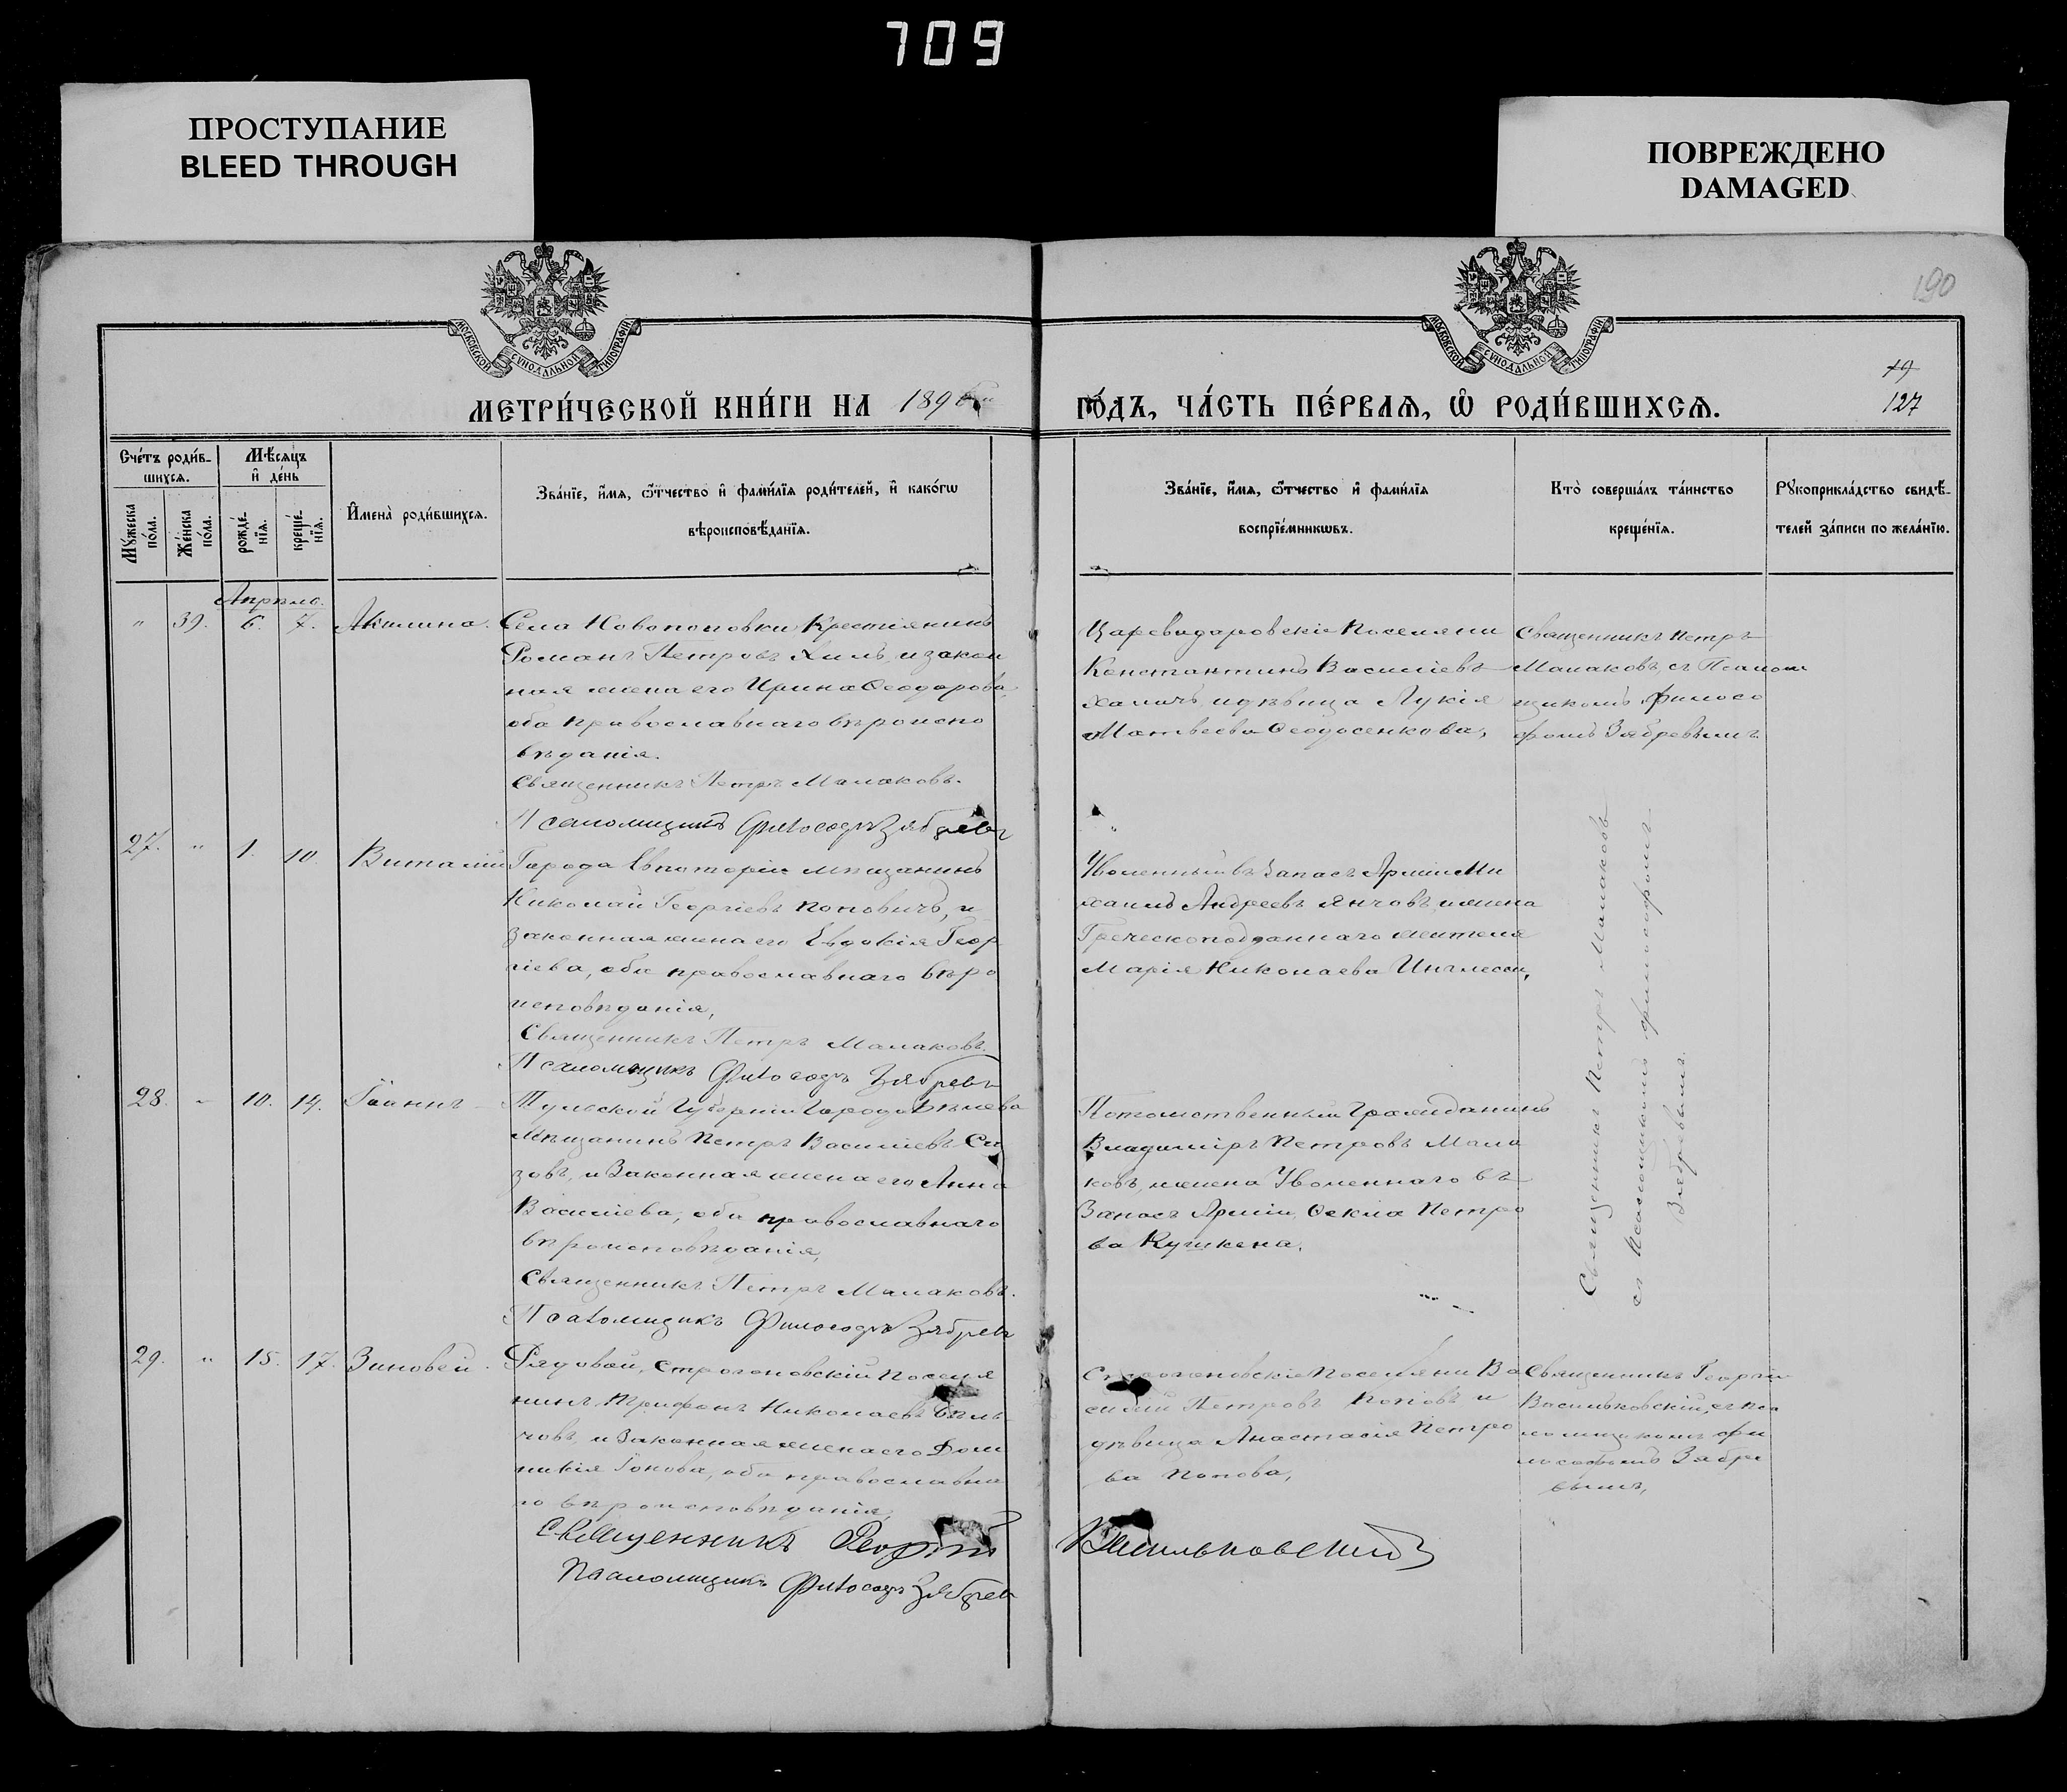 709
ПРОСТУПАНИЕ
BLEED THROUGH
ПОВРЕЖДЕНО
DAMAGED
190
МОСКОВСКОЙ СѴНОДАЛЬНОЙ ТИПОГРАФІИ
МОСКОВСКОЙ СѴНОДАЛЬНОЙ ТИПОГРАФІИ
19
127
МЕТРИ́ЧЕСКОЙ КНИ́ГИ НА 1896
ГО́ДЪ, ЧА́СТЬ ПЕ́РВАѦ, Ѽ РОДИ́ВШИХСѦ.
Сче́тъ роди́в-
шихсѧ.
Мѣ́сѧцъ
и҆ де́нь
Мꙋ́жеска по́ла.
Же́нска по́ла.
рожде́-
нїѧ.
креще́-
нїѧ.
И҆мена̀ роди́вшихсѧ.
Зва́нїе, и҆́мѧ, ѻ҆́тчество и҆ фами́лїѧ роди́телей, и҆ како́гѡ
вѣроисповѣ́данїѧ.
Зва́нїе, и҆́мѧ, ѻ҆́тчество и҆ фами́лїѧ
воспрїе́мникѡвъ.
Кто̀ соверша́лъ та́инство
креще́нїѧ.
Рꙋкоприкла́дство свидѣ́-
телей за́писи по жела́нїю.
Апрѣль.
" 39. 6. 7. Акилина.
Села Новопоповки Крестіянинъ
Романъ Петровъ Хиль, и закон
ная жена его Ирина Ѳеодорова,
оба православнаго вѣроиспо
вѣданія.
Священникъ Петръ Малаковъ.
Псаломщикъ Философъ Зябревъ
Царевидаровскіе Поселяни
Константинъ Василіевъ
Халачъ и дѣвица Лукія
Матвеева Ѳеодосенкова,
Священникъ Петръ
Малаковъ, съ Псалом
щикомъ Филосо
фомъ Зябревымъ.
27. " 1. 10. Виталій
Города Евпаторіи мѣщанинъ
Николай Георгіевъ Поповичъ, и
законная жена его Евдокія Геор
гіева, оба православнаго вѣро
исповѣданія,
Священникъ Петръ Малаковъ.
Псаломщикъ Философъ Зябревъ
Уволенный въ Запасъ Арміи Ми
хаилъ Андреевъ Янчовъ и жена
Греческоподданнаго жителя
Марія Николаева Инглесси,
Священникъ Петръ Малаковъ
съ Псаломщикомъ Философомъ
Зябревымъ.
28. " 10. 14. Іоаннъ
Тульской Губерніи Города Бѣлева
Мѣщанинъ Петръ Василіевъ Си
зовъ, и Законная жена его Анна
Василіева, оба православнаго
вѣроисповѣданія,
Священникъ Петръ Малаковъ.
Псаломщикъ Философъ Зябревъ
Потомственный Гражданинъ
Владиміръ Петровъ Мала
ковъ, и жена Уволеннаго въ
Запасъ Арміи, Ѳекла Петро
ва Кушкена.
29. " 15. 17. Зиновей.
Рядовой, Строгоновскій Поселя
нинъ Трифонъ Николаевъ
човъ, и Законная жена его Дом
никія Іонова, оба православна
го вѣроисповѣданія,
Священникъ Георгій Васильковскій
Псаломщикъ Философъ Зябревъ
Строгоновскіе Поселяни Ва
силій Петровъ Поповъ и
дѣвица Анастасія Петро
ва Попова,
Священникъ Георгій
Васильковскій, съ Пса
ломщикомъ Фи
лософомъ Зябре
вымъ,